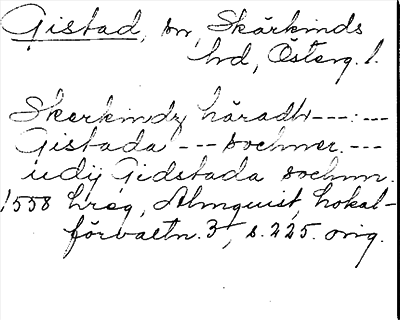 Gistad, sn, Skärkinds
hd, Österg. l.
Skerkindz häradh ---:---
Gistada --- sochner. ---
udij Gidstada sochnn.
1558 hreg, Almquist, Lokal-
förvaltn. 3, s. 225. orig.